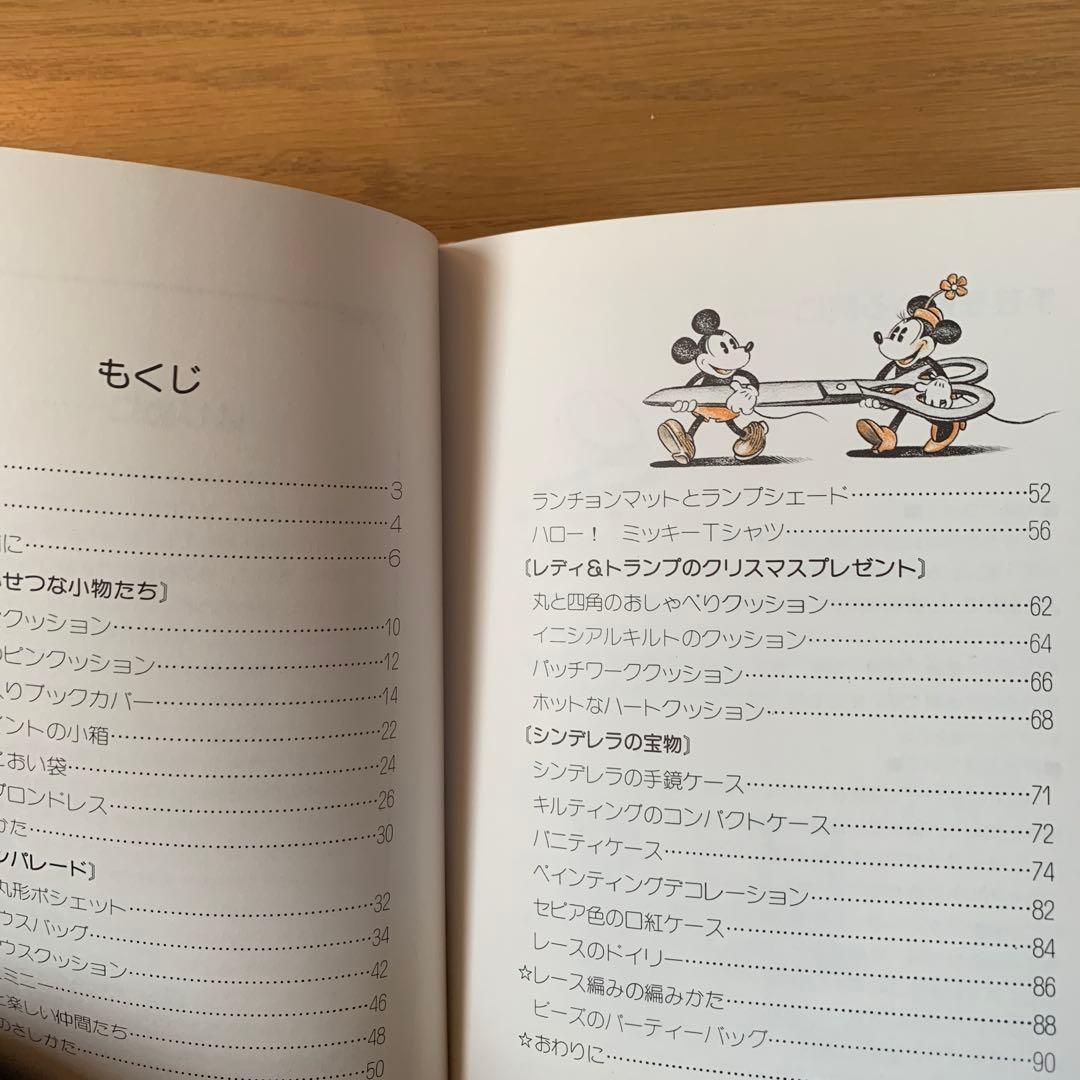 もくじ
3
4
に 6
せつな小物たち〕
クッション 10
のピンクッション 12
入りブックカバー 14
イントの小箱 22
におい袋 24
プロンドレス 26
かた 30
ンパレード〕
丸形ポシェット 32
ウスバッグ 34
ウスクッション 42
ミニー 46
と楽しい仲間たち 48
のさしかた 50
ランチョンマットとランプシェード 52
ハロー！　ミッキーTシャツ 56
〔レディ&トランプのクリスマスプレゼント〕
丸と四角のおしゃべりクッション 62
イニシアルキルトのクッション 64
パッチワーククッション 66
ホットなハートクッション 68
〔シンデレラの宝物〕
シンデレラの手鏡ケース 71
キルティングのコンパクトケース 72
バニティケース 74
ペインティングデコレーション 82
セピア色の口紅ケース 84
レースのドイリー 86
☆レース編みの編みかた 88
ビーズのパーティーバッグ 90
☆おわりに